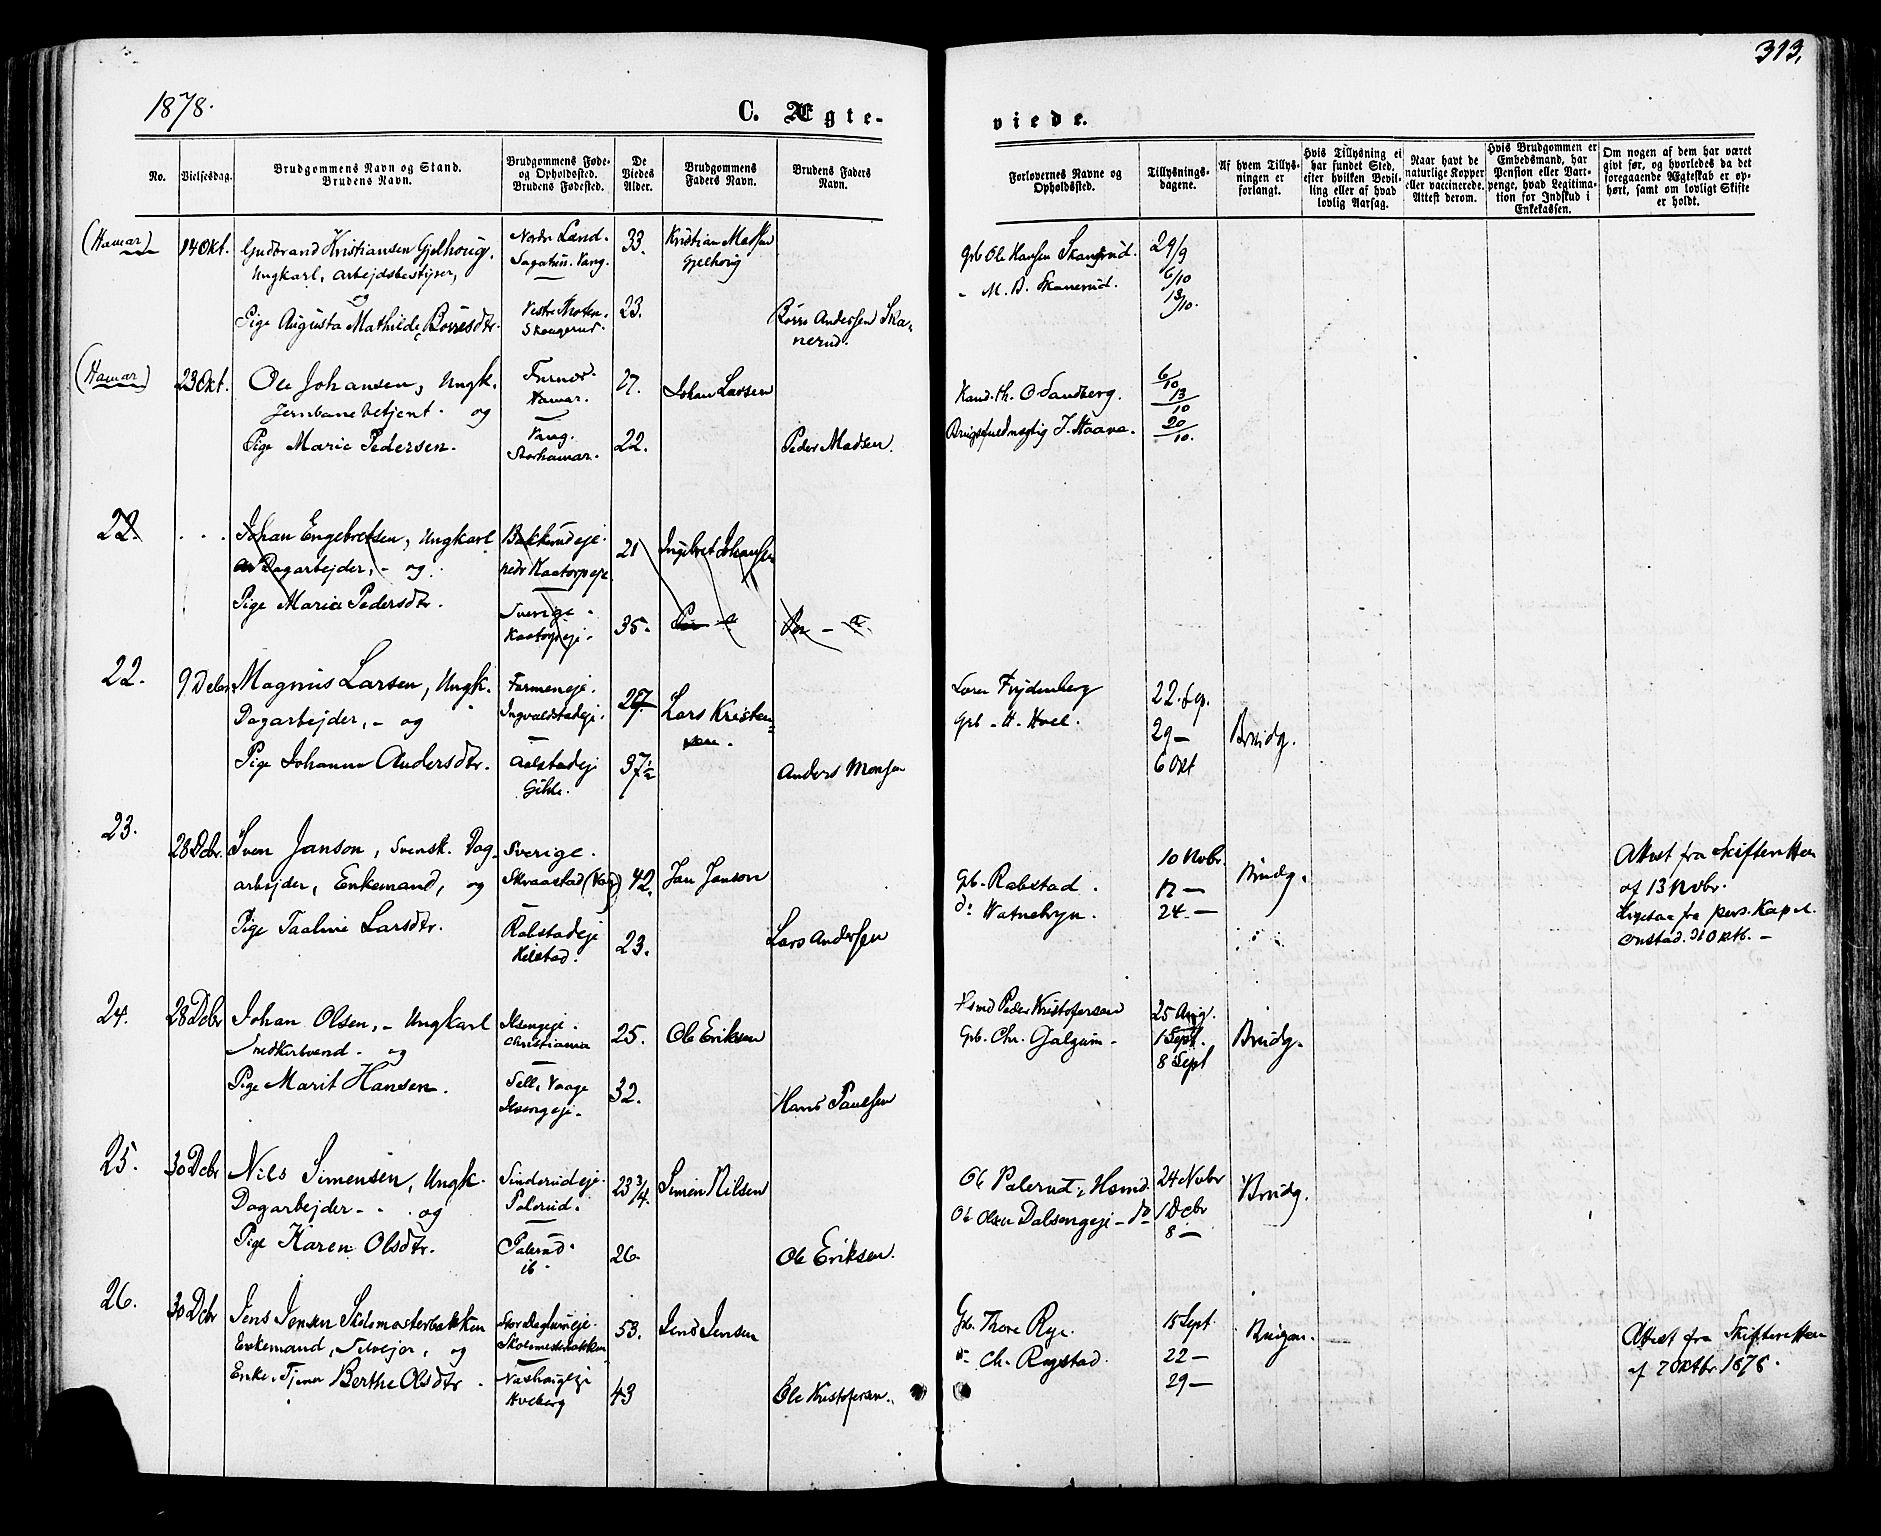 313.
1878.
C. Ægte-
viede.
No.
Vielsesdag.
Brudgommens Navn og Stand.
Brudens Navn.
Brudgommens Føde-
og Opholdssted.
Brudens Fødested.
De
Viedes
Alder.
Brudgommens
Faders Navn.
Brudens Faders
Navn.
Forlovernes Navne og
Opholdssted.
Tillysnings-
dagene.
Af hvem Tillys-
ningen er
forlangt.
Hvis Tillysning ei
har fundet Sted,
efter hvilken Bevil-
ling eller af hvad
lovlig Aarsag.
Naar havt de
naturlige Kopper
eller vaccinerede.
Attest derom.
Hvis Brudgommen er
Embedsmand, har
Pension eller Vart-
penge, hvad Legitima-
tion for Indskud i
Enkekassen.
Om nogen af dem har været
givt før, og hvorledes da det
foregaaende Ægteskab er op-
hørt, samt om lovligt Skifte
er holdt.
(Hamar)
14 Okt.
Gudbrand Kristiansen Gjelhoug,
Ungkarl, arbejdsbestyrer,
og
Pige Augusta Mathilde Børresdtr.
Nordre Land.
Vang.
Vestre Thoten.
33.
23.
Kristian Madsen
Gjelhoug
Børre Andersen Ska-
nerud.
Grb Ole Hansen
" M. B. Skanerud.
29/9
6/10
13/10.
(Hamar)
23 Okt.
Ole Johansen, Ungk.
Jernbanebetjent. og
Pige Marie Pedersen.
Furnes.
Hamar.
Vang.
Storhamar.
27.
22.
Johan Larsen
Peder Madsen.
Kand. th. O Sandberg.
J. Haave.
6/10
13/10
20/10.
22.
Johan Engebretsen, Ungkarl
Dagarbejder, - og
Pige Maria Pedersdtr.
Bakkerudeje.
nedr Kaatorpeje
Sverige.
Kaatorpeje.
21
35.
Ingebret Johansen
22.
9 Debr
Magnus Larsen, Ungk.
Dagarbejder, - og
Pige Johanne Andersdtr.
Farmeneje.
Ingvaldstadeje.
Aalstadeje
Gihle.
37 1/2
Lars Kristen-
sen.
Anders Monsen
Frydenberg
Grb - H. Hoel.
22. Sep.
29 —
6 Okt
Brudg.
23.
28 Dcbr.
Sven Janson, svensk. Dag-
arbejder, Enkemand, og
Pige Taaline Larsdtr.
Sverige.
Skraastad (Vang)
Rabstadeje
Kilstad.
42.
23.
Jan Janson
Lars Andersen
Gb. Rabstad.
do Watnebryn.
10 Novbr.
17 —
24 —
Brudg.
Attest fra Skifteretten
af 13 Novbr.
Ligesaa fra pers. Kapel.
Onstad. 31 Oktb. —
24.
28 Dcbr
Johan Olsen, - Ungkarl
Smedkersvend - og
Pige Marit Hansen.
Ilsengeje.
Christiania
Sell, Vaage
Ilsengeje.
25.
32.
Ole Eriksen
Hans Paulsen
Hsmd Peder Kristofersen
Gb. Chr. Galgum -
25 Aug.
1 Sept.
8 Sept
Brudg.
25.
30 Dcbr
Nils Simensen, Ungk.
Dagarbejder - - og
Pige Karen Olsdtr.
Sinderudeje.
Palerud.
Palerud.
ib.
23 3/4.
26.
Simen Nilsen
Ole Eriksen.
Ole Palerud, Hsmd.
Ole Olsen Dalsengeje - do
24 Novbr
1 Dcbr
8 —
Brudg.
26.
30 Dcbr
Jens Jensen Skolemesterbakken
Enkemand, Selvejer, og
Enke, Tjener Berthe Olsdtr.
Skolemesterbakken
Hveberg
53.
43
Jens Jensen
Ole Kristofersen.
Gb. Thore Rye.
do Ch. Rogstad.
15 Sept
22 —
29 —
Brudgom.
Attest fra Skifteretten
af 7 Oktbr 1878.